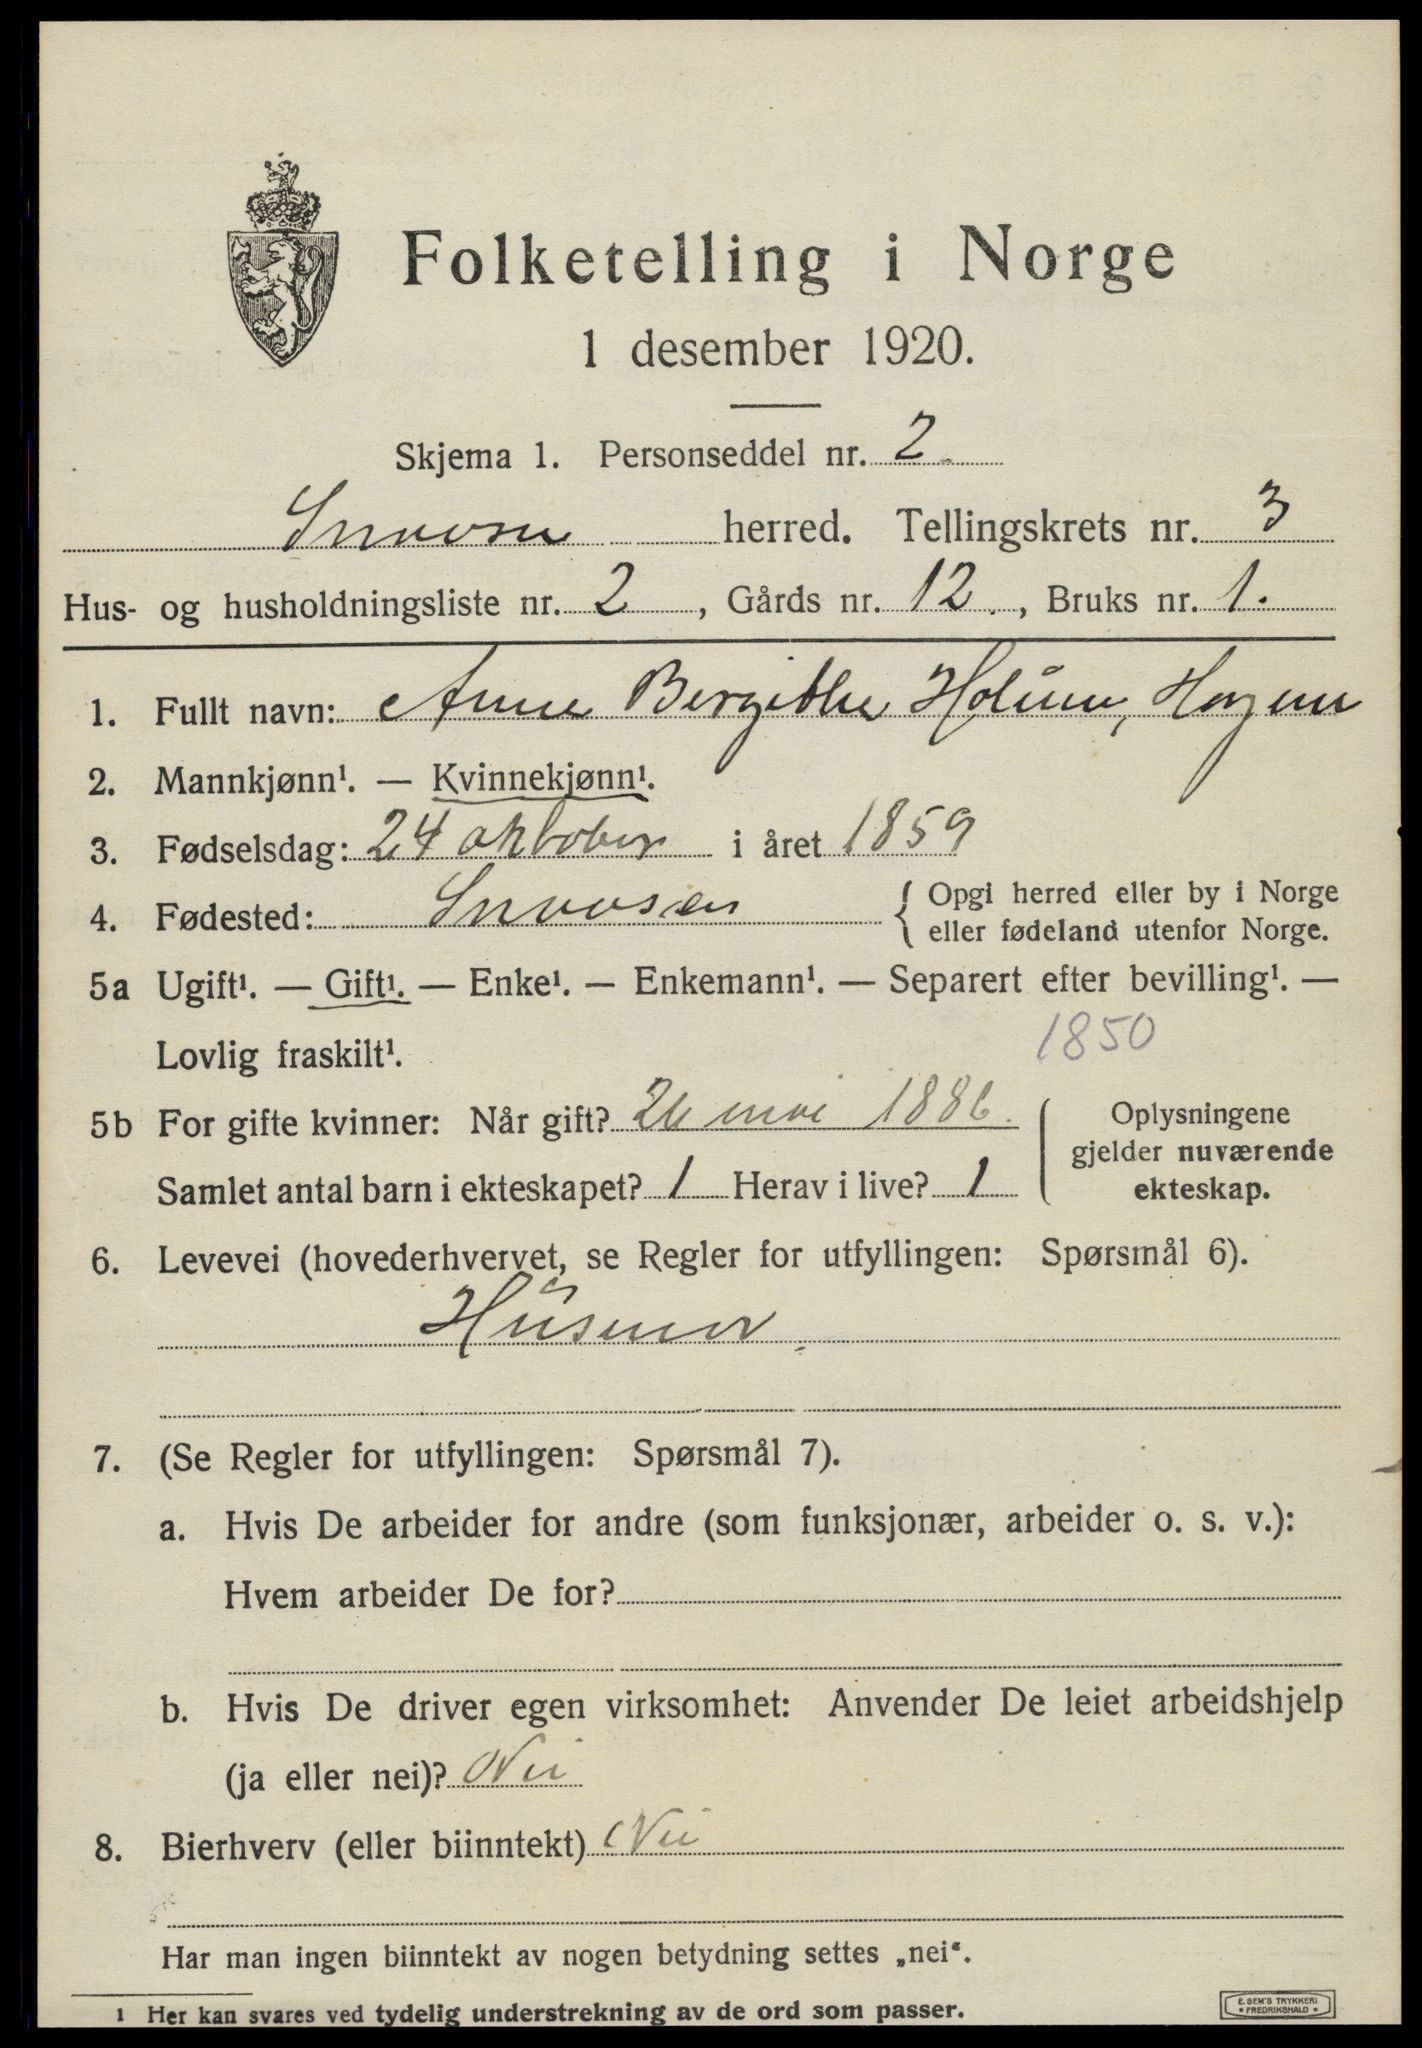 Folketelling i Norge
1 desember 1920.
Skjema 1. Personseddel nr. 2
Snaasen herred. Tellingskrets nr. 3
Hus- og husholdningsliste nr. 2, Gårds nr. 12., Bruks nr. 1.
1. Fullt navn: Anne Bergitthe Holum,
2. Mannkjønn¹. — Kvinnekjønn¹.
3. Fødselsdag: 24 oktober i året 1859
4. Fødested: Snaasen { Opgi herred eller by i Norge
eller fødeland utenfor Norge.
5a Ugift¹. — Gift¹. — Enke¹. — Enkemann¹. — Separert efter bevilling¹. —
Lovlig fraskilt¹. 1850
5b For gifte kvinner: Når gift? 26 mai 1886. Oplysningene
gjelder nuværende
Samlet antal barn i ekteskapet? 1 Herav i live? 1 ekteskap.
6. Levevei (hovederhvervet, se Regler for utfyllingen: Spørsmål 6).
Husmor
7. (Se Regler for utfyllingen: Spørsmål 7).
a. Hvis De arbeider for andre (som funksjonær, arbeider o. s. v.):
Hvem arbeider De for?
b. Hvis De driver egen virksomhet: Anvender De leiet arbeidshjelp
(ja eller nei)? Nei
8. Bierhverv (eller biinntekt) Nei
Har man ingen biinntekt av nogen betydning settes „nei“.
1 Her kan svares ved tydelig understrekning av de ord som passer.
E. SEM'S TRYKKERI
* FREDRIKSHALD *